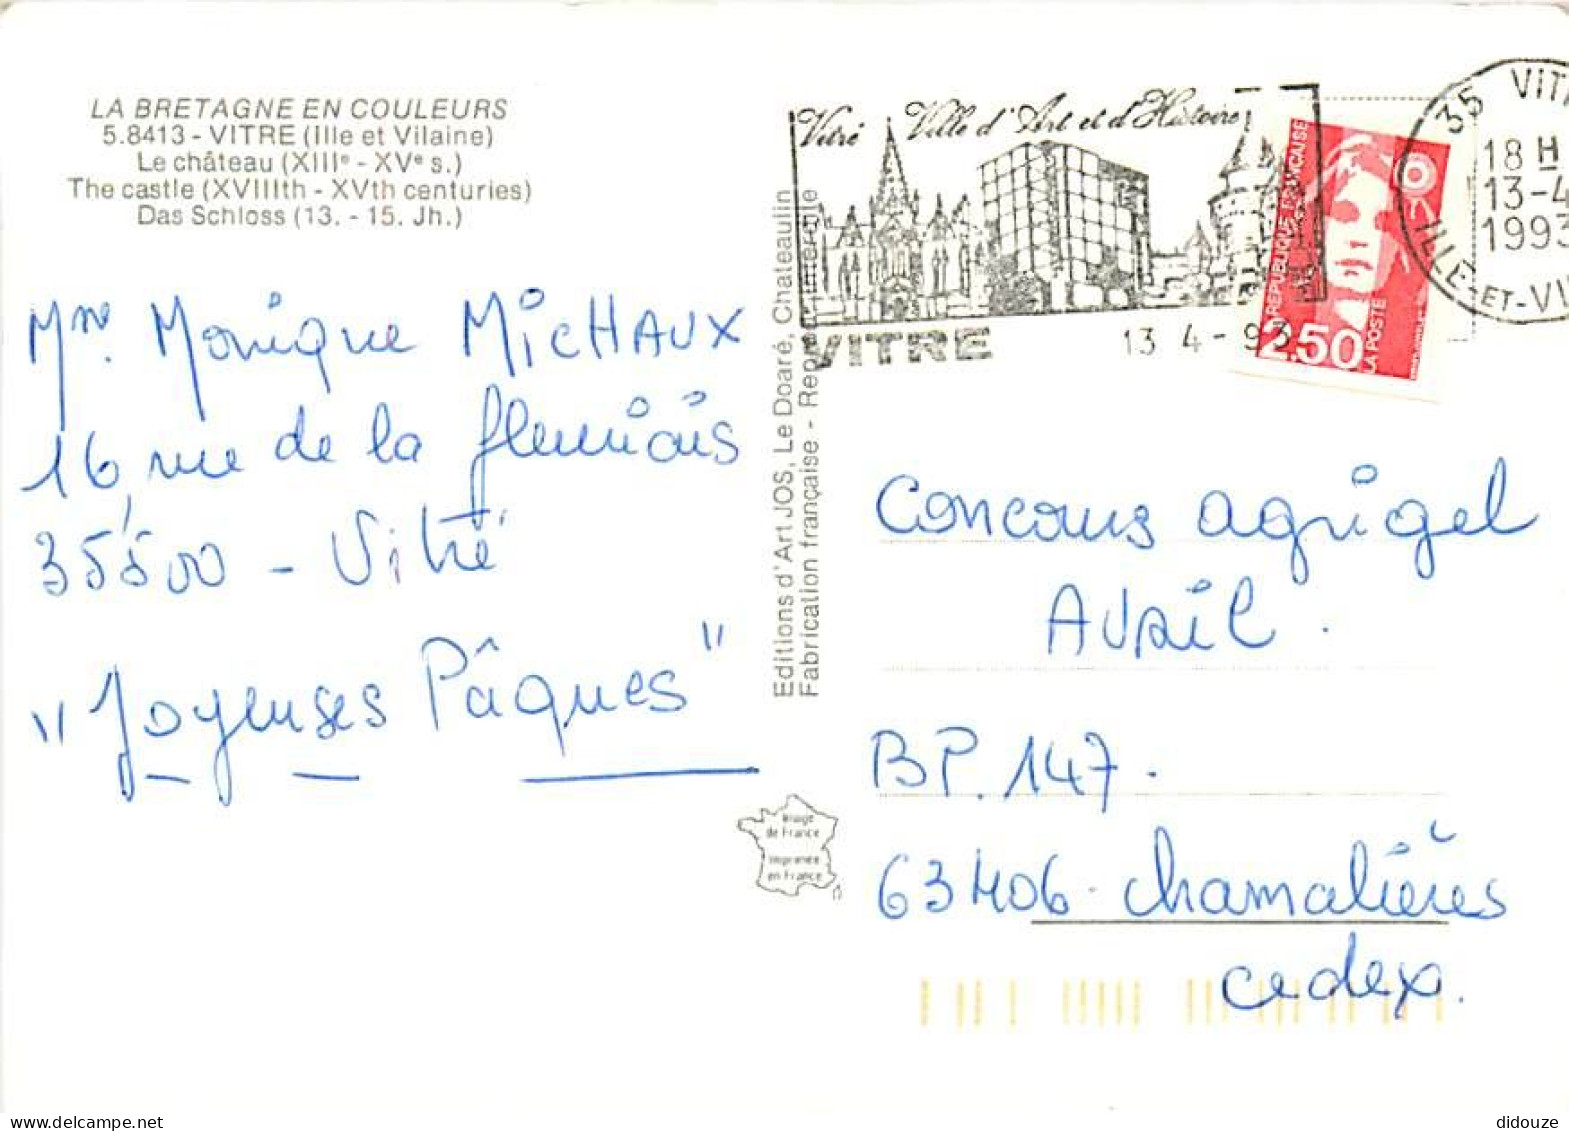 LA BRETAGNE EN COULEURS
5.8413 - VITRE (Ille et Vilaine)
Le château (XIIIe - XVe s.)
The castle (XVIIIth - XVth centuries)
Das Schloss (13. - 15. Jh.)
Mme. Monique MICHAUX
16, rue de la fleuriais
35500 - Vitré
"Joyeuses Pâques"
Editions d'Art JOS, Le Doaré, Chateaulin
Fabrication française - Repro. interdite
Image
de France
Imprimée
en France
Vitré Ville d'Art et d'Histoire
VITRE
13 4 - 93
REPUBLIQUE FRANÇAISE
2,50
LA POSTE
35 VITR
18 H
13-4
1993
ILLE-ET-VI
Concours agrigel
Avril.
BP. 147.
63406 - chamalières
cedex.
didouze